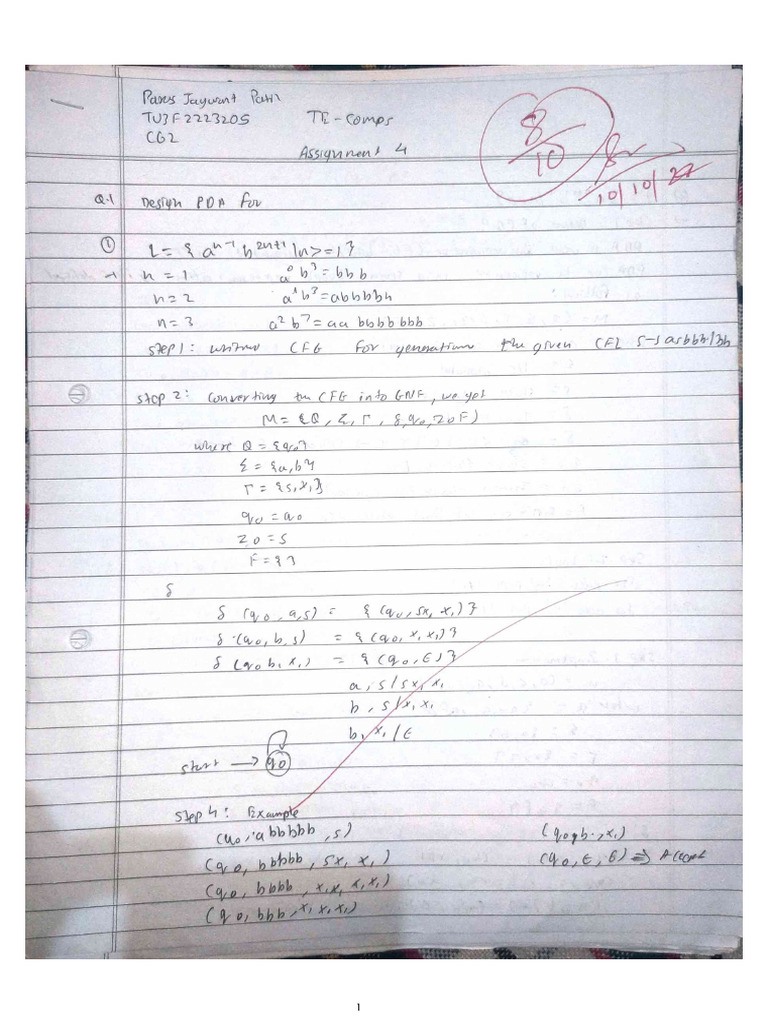 Paras Jaywant Patil
TU3F2223205 TE-comps
CG2
Assignment 4
8/10
10/10/22
Q.1 Design PDA for
① L = { a^n-1 b^2n+1 | n>=1 }
→ n = 1 a^0 b^3 = bbb
n = 2 a^1 b^3 = abbbbb
n = 3 a^2 b^7 = aa bbbbbbb
Step 1: CFG for generation the given CFL S→asbbb|bb
Step 2: Converting the CFG into GNF, we get
M = {Q, Σ, Γ, δ, q0, Z0 F)
where Q = {q0}
Σ = {a,b}
Γ = {S, X1}
q0 = q0
Z0 = S
F = { }
δ
δ (q0, a, s) = {(q0, SX1 X1)}
δ (q0, b, s) = {(q0, X1 X1)}
δ (q0 b, X1) = {(q0, ε)}
a, S/SX1 X1
b, S/X1 X1
b, X1/ε
Start → q0
Step 4: Example
(q0, abbbbb, S) (q0, b, X1)
(q0, bbbbb, SX1 X1) (q0, ε, ε) ⇒ Accept
(q0, bbbb, X1 X1 X1 X1)
(q0, bbb, X1 X1 X1)
1